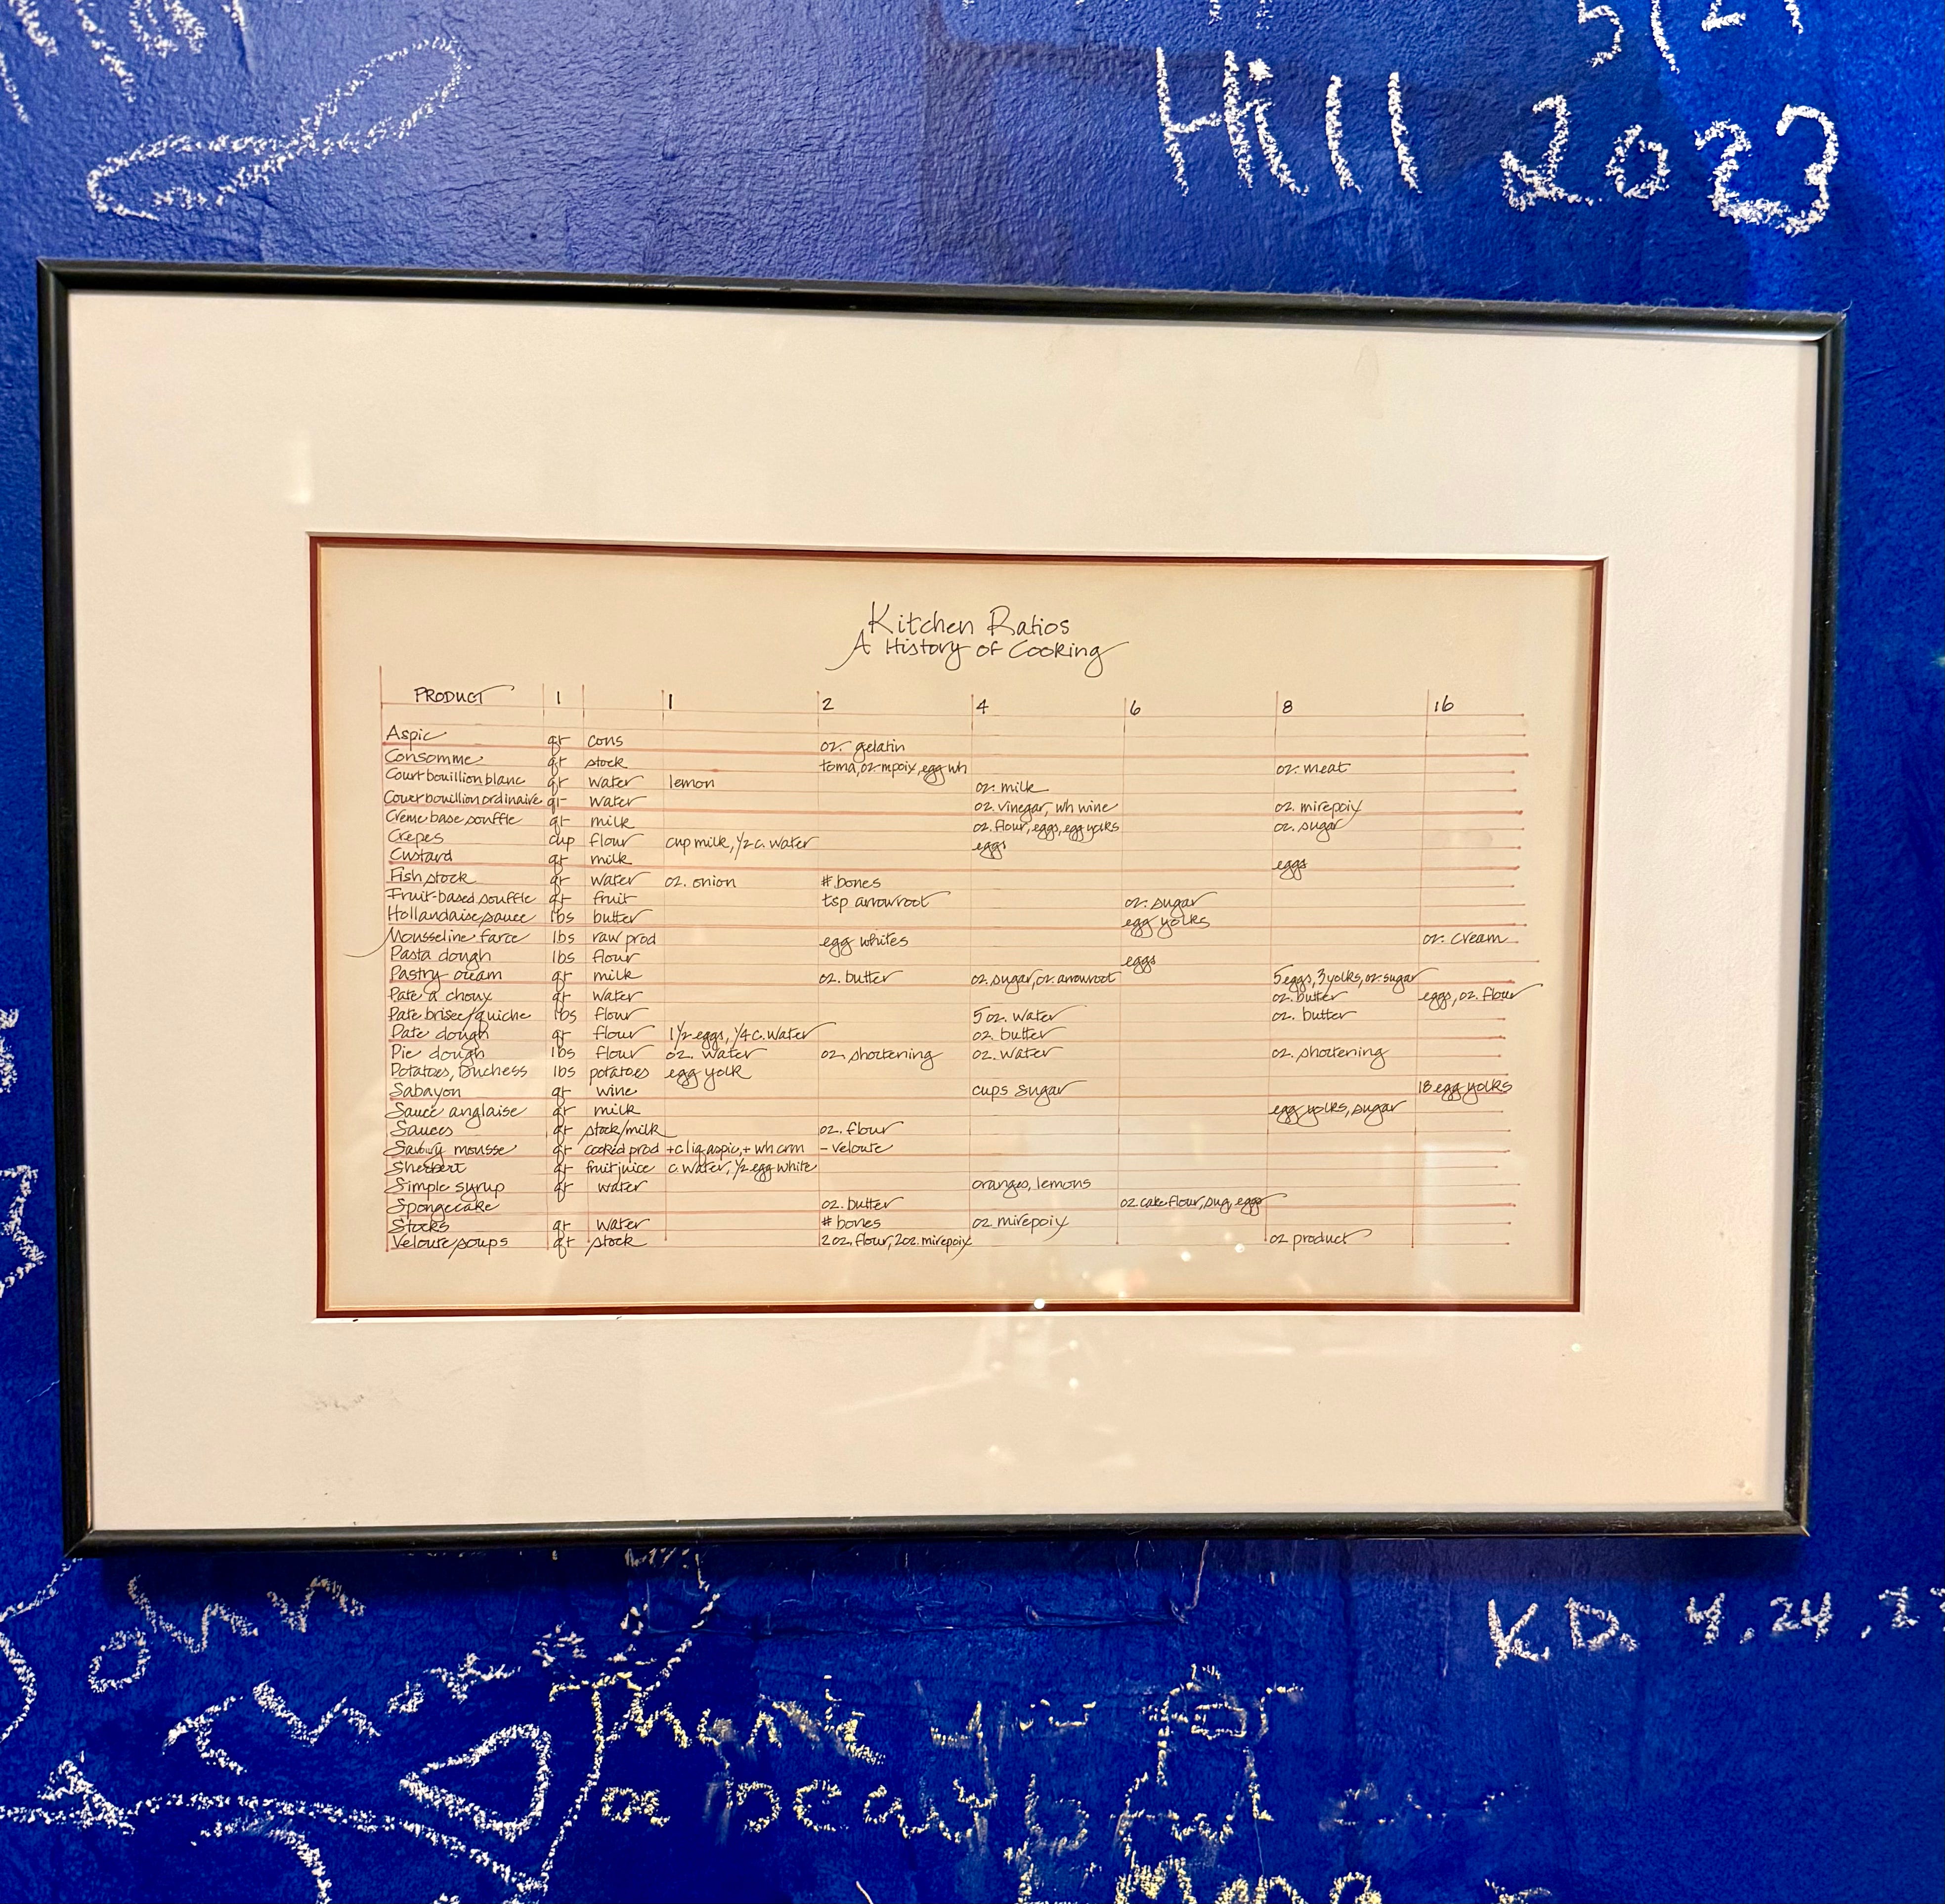 5/21
Hill 2023
Kitchen Ratios
A History of Cooking
PRODUCT 1 1 2 4 6 8 16
Aspic qr cons oz. gelatin
Consomme qr stock toma, oz mpoix, egg wh oz. meat
Court bouillion blanc qr water lemon oz. milk
Court bouillion ordinaire qr water oz. vinegar, wh wine oz. mirepoix
Creme base souffle qr milk oz. flour, eggs, egg yolks oz. sugar
Crepes cup flour cup milk, 1/2 c. water eggs
Custard qr milk eggs
Fish stock qr water oz. onion # bones
Fruit-based souffle qr fruit tsp arrowroot oz. sugar
Hollandaise sauce lbs butter egg yolks
Mousseline farce lbs raw prod egg whites oz. cream
Pasta dough lbs flour eggs
Pastry cream qr milk oz. butter oz. sugar, oz. arrowroot 5 eggs, 3 yolks, oz. sugar
Pate a choux qr water oz. butter eggs, oz. flour
Pate brisee/quiche lbs flour 5 oz. water oz. butter
Pate dough qr flour 1 1/2 eggs, 1/4 c. water oz. butter
Pie dough lbs flour oz. water oz. shortening oz. water oz. shortening
Potatoes, Duchess lbs potatoes egg yolk
Sabayon qr wine cups sugar 18 egg yolks
Sauce anglaise qr milk egg yolks, sugar
Sauces qr stock/milk oz. flour
Savory mousse qr cooked prod +c liq aspic, + wh crm - veloute
Sherbert qr fruit juice c. water, 1/2 egg white
Simple syrup qr water oranges, lemons
Spongecake oz. butter oz. cake flour, sug, eggs
Stocks qr water # bones oz. mirepoix
Veloute soups qr stock 2 oz. flour, 2 oz. mirepoix oz product
John
K.D. 4.24.23
Thank you for
a beautiful